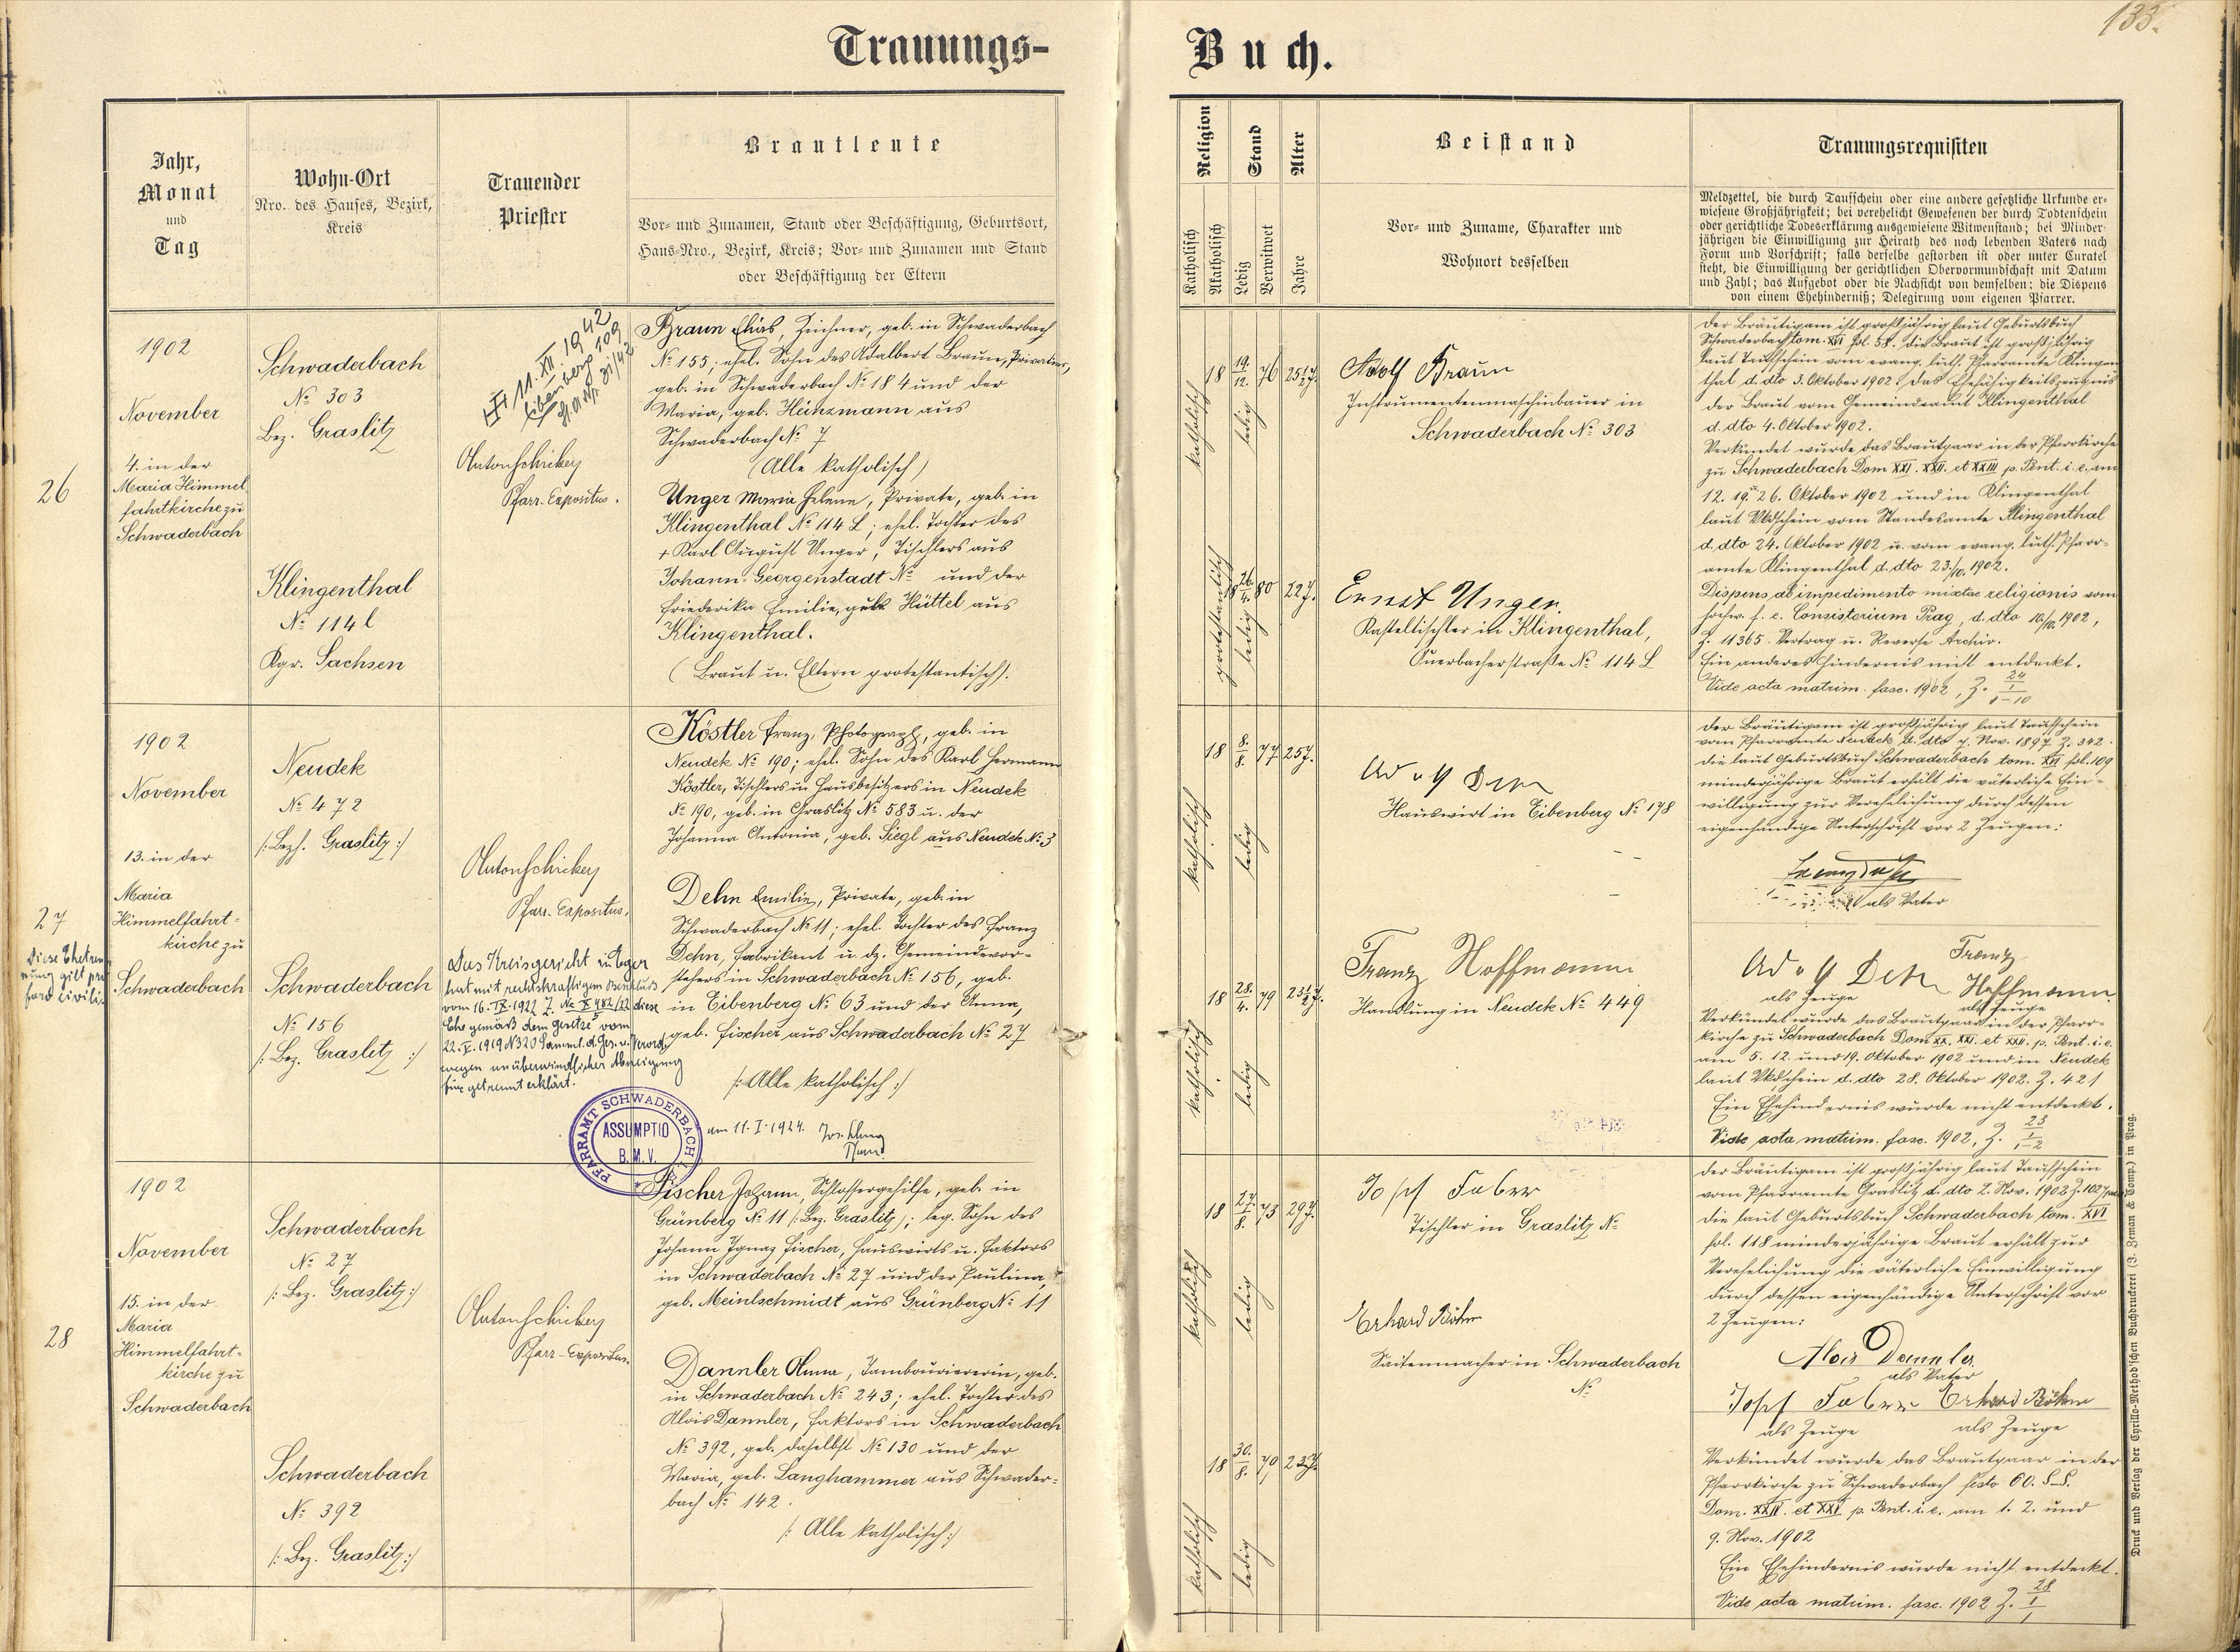 133.
Trauungs-
Buch.
Jahr,
Monat
und
Tag
Wohn-Ort
Nro. des Hauses, Bezirk,
Kreis
Trauender
Priester
Brautleute
Vor- und Zunamen, Stand oder Beschäftigung, Geburtsort,
Haus-Nro., Bezirk, Kreis; Vor- und Zunamen und Stand
oder Beschäftigung der Eltern
Religion
Katholisch
Akatholisch
Stand
Ledig
Verwitwet
Alter
Jahre
Beistand
Vor- und Zuname, Charakter und
Wohnort desselben
Trauungsrequisiten
Meldzettel, die durch Taufschein oder eine andere gesetzliche Urkunde er-
wiesene Großjährigkeit; bei verehelicht Gewesenen der durch Todtenschein
oder gerichtliche Todeserklärung ausgewiesene Witwenstand; bei Minder-
jährigen die Einwilligung zur Heirath des noch lebenden Vaters nach
Form und Vorschrift; falls derselbe gestorben ist oder unter Curatel
steht, die Einwilligung der gerichtlichen Obervormundschaft mit Datum
und Zahl; das Aufgebot oder die Nachsicht von demselben; die Dispens
von einem Ehehinderniß; Delegirung vom eigenen Pfarrer.
26
1902
November
4. in der
Maria Himmel-
fahrtkirche zu
Schwaderbach
Schwaderbach
No 303
Bez. Graslitz
Klingenthal
No 114 l
Kgr. Sachsen
11. XII. 1942
Eibenberg 109
31/42
Anton Schickey
Pfarr-Expositus.
Braun Elias, Zeichner, geb. in Schwaderbach
No 155; ehel. Sohn des Adalbert Braun, Privatier,
geb. in Schwaderbach No 184 und der
Maria, geb. Heinzmann aus
Schwaderbach No 7
(Alle katholisch)
Unger Maria Helene, Private, geb. in
Klingenthal No 114 L; ehel. Tochter des
+ Karl August Unger, Tischlers aus
Johann-Georgenstadt No und der
Friederika Emilie, geb. Hüttel aus
Klingenthal.
(Braut u. Eltern protestantisch).
katholisch
18 19./12. 76
ledig
25 1/2 J.
protestantisch
18 26./4. 80
ledig
22 J.
Adolf Braun
Instrumentenmaschinbauer in
Schwaderbach No 303
Ernst Unger.
Kastellischler in Klingenthal,
Auerbacherstraße No 114 L
Der Bräutigam ist großjährig laut Geburtsbuch
Schwaderbach tom. XVI fol. 58. die Braut ist großjährig
laut Taufschein vom evang. luth. Pfarramte Klingen-
thal d. dto 3. Oktober 1902. Das Ehefähigkeitszeugnis
der Braut vom Gemeindeamt Klingenthal
d. dto 4. Oktober 1902.
Verkündet wurde das Brautpaar in der Pfarrkirche
zu Schwaderbach Dom XXI. XXII. et XXIII p. Pent. i. e. am
12. 19. 26. Oktober 1902 und in Klingenthal
laut Vkdschein vom Standesamte Klingenthal
d. dto 24. Oktober 1902 u. vom evang. luth. Pfarr-
amte Klingenthal d. dto 23./10. 1902.
Dispens ab impedimento mixtae religionis vom
hochw. f. e. Consistorium Prag, d. dto 10/10. 1902,
Z. 11365. Vertrag u. Reverse Archiv.
Ein anderes Hindernis nicht entdeckt.
Vide acta matrim. fasc. 1902, Z. 24/1-10
27
Diese Ehetren-
nung gilt pro
foro civili.
1902
November
13. in der
Maria
Himmelfahrt-
kirche zu
Schwaderbach
Neudek
No 472
/: Bezh. Graslitz :/
Schwaderbach
No 156
/: Bez. Graslitz :/
Anton Schickey
Pfarr-Expositus.
Das Kreisgericht in Eger
hat mit rechtskräftigem Beschluß
vom 16. IX. 1922 Z. Nc X 482/22 diese
Ehe gemäß dem Gesetze vom
22. V. 1919 N 320 Samml. d. Ges. u. Verord.
wegen unüberwindlicher Abneigung
für getrennt erklärt.
PFARRAMT SCHWADERBACH
ASSUMPTIO
B. M. V.
am 11. I. 1924.
Köstler Franz, Photograph, geb. in
Neudek No 190; ehel. Sohn des Karl Hermann
Köstler, Tischlers u. Hausbesitzers in Neudek
No 190, geb. in Graslitz No 583 u. der
Johanna Antonia, geb. Siegl aus Neudek No 3
Dehn Emilie, Private, geb. in
Schwaderbach No 11; ehel. Tochter des Franz
Dehn, Fabrikant u. dz. Gemeindevor-
stehers in Schwaderbach No 156, geb.
in Eibenberg No 63 und der Anna,
geb. Fischer aus Schwaderbach No 27
/: Alle katholisch :/
katholisch
18 8./8. 77
ledig
25 J.
katholisch
18 28./4. 79
ledig
23 1/2 J.
Adolf Dehn
Hauswirt in Eibenberg No 178
Franz Hoffmann
Handlung in Neudek No 449
Der Bräutigam ist großjährig laut Taufschein
vom Pfarramte Neudek d. dto 7. Nov. 1897 Z. 342.
Die laut Geburtsbuch Schwaderbach tom. XVI fol. 109
minderjährige Braut erhält die väterliche Ein-
willigung zur Verehelichung durch dessen
eigenhändige Unterschrift vor 2 Zeugen:
als Vater
Adolf Dehn
als Zeuge
Franz
Hoffmann
als Zeuge
Verkündet wurde das Brautpaar in der Pfarr-
kirche zu Schwaderbach Dom. XX. XXI. et XXII. p. Pent. i. e.
am 5. 12. und 19. Oktober 1902 und in Neudek
laut Vkdschein d. dto 28. Oktober 1902. Z. 421
Ein Ehehindernis wurde nicht entdeckt.
Vide acta matrim. fasc. 1902, Z. 25/1-2
28
1902
November
15. in der
Maria
Himmelfahrt-
kirche zu
Schwaderbach
Schwaderbach
No 27
/: Bez. Graslitz :/
Schwaderbach
No 392
/: Bez. Graslitz :/
Anton Schickey
Pfarr-Expositus.
Fischer Johann, Schlossergehilfe, geb. in
Grünberg No 11 /: Bez. Graslitz :/; leg. Sohn des
Johann Ignaz Fischer, Hauswirts u. Faktors
in Schwaderbach No 27 und der Paulina,
geb. Meinlschmidt aus Grünberg No 11
Dannler Anna, Tambouriererin, geb.
in Schwaderbach No 243; ehel. Tochter des
Alois Dannler, Faktors in Schwaderbach
No 392, geb. daselbst No 130 und der
Maria, geb. Langhammer aus Schwader-
bach No 142.
/: Alle katholisch :/
katholisch
18 27./8. 73
ledig
29 J.
katholisch
18 30./8. 79
ledig
23 J.
Josef Faber
Tischler in Graslitz No
Erhard Böhm
Saitenmacher in Schwaderbach
No
Der Bräutigam ist großjährig laut Taufschein
vom Pfarramte Graslitz d. dto 2. Nov. 1902 Z. 1027
Die laut Geburtsbuch Schwaderbach tom. XVI
fol. 118 minderjährige Braut erhält zur
Verehelichung die väterliche Einwilligung
durch dessen eigenhändige Unterschrift vor
2 Zeugen:
Alois Dannler
als Vater
Josef Faber Erhard Böhm
als Zeuge als Zeuge
Verkündet wurde das Brautpaar in der
Pfarrkirche zu Schwaderbach festo OO. S.S.
Dom. XXIV. et XXV p. Pent. i. e. am 1. 2. und
9. Nov. 1902
Ein Ehehindernis wurde nicht entdeckt.
Vide acta matrim. fasc. 1902 Z. 28/1
Druck und Verlag der Cyrillo-Method'schen Buchdruckerei (J. Zeman & Comp.) in Prag.